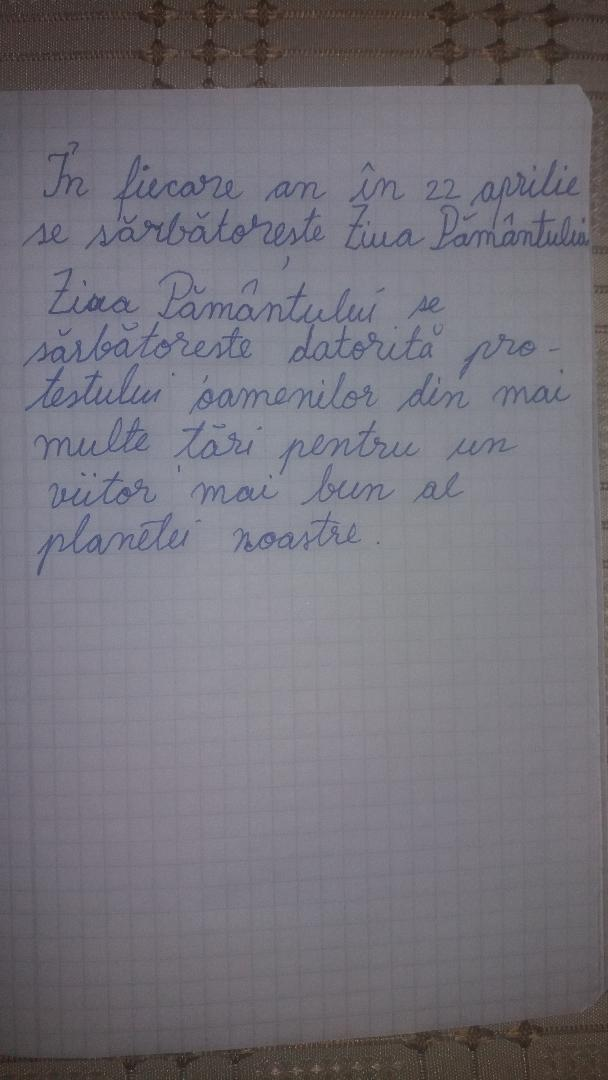 În fiecare an în 22 aprilie
se sărbătorește Ziua Pământului
Ziua Pământului se
sărbătorește datorită pro-
testului oamenilor din mai
multe țări pentru un
viitor mai bun al
planetei noastre.